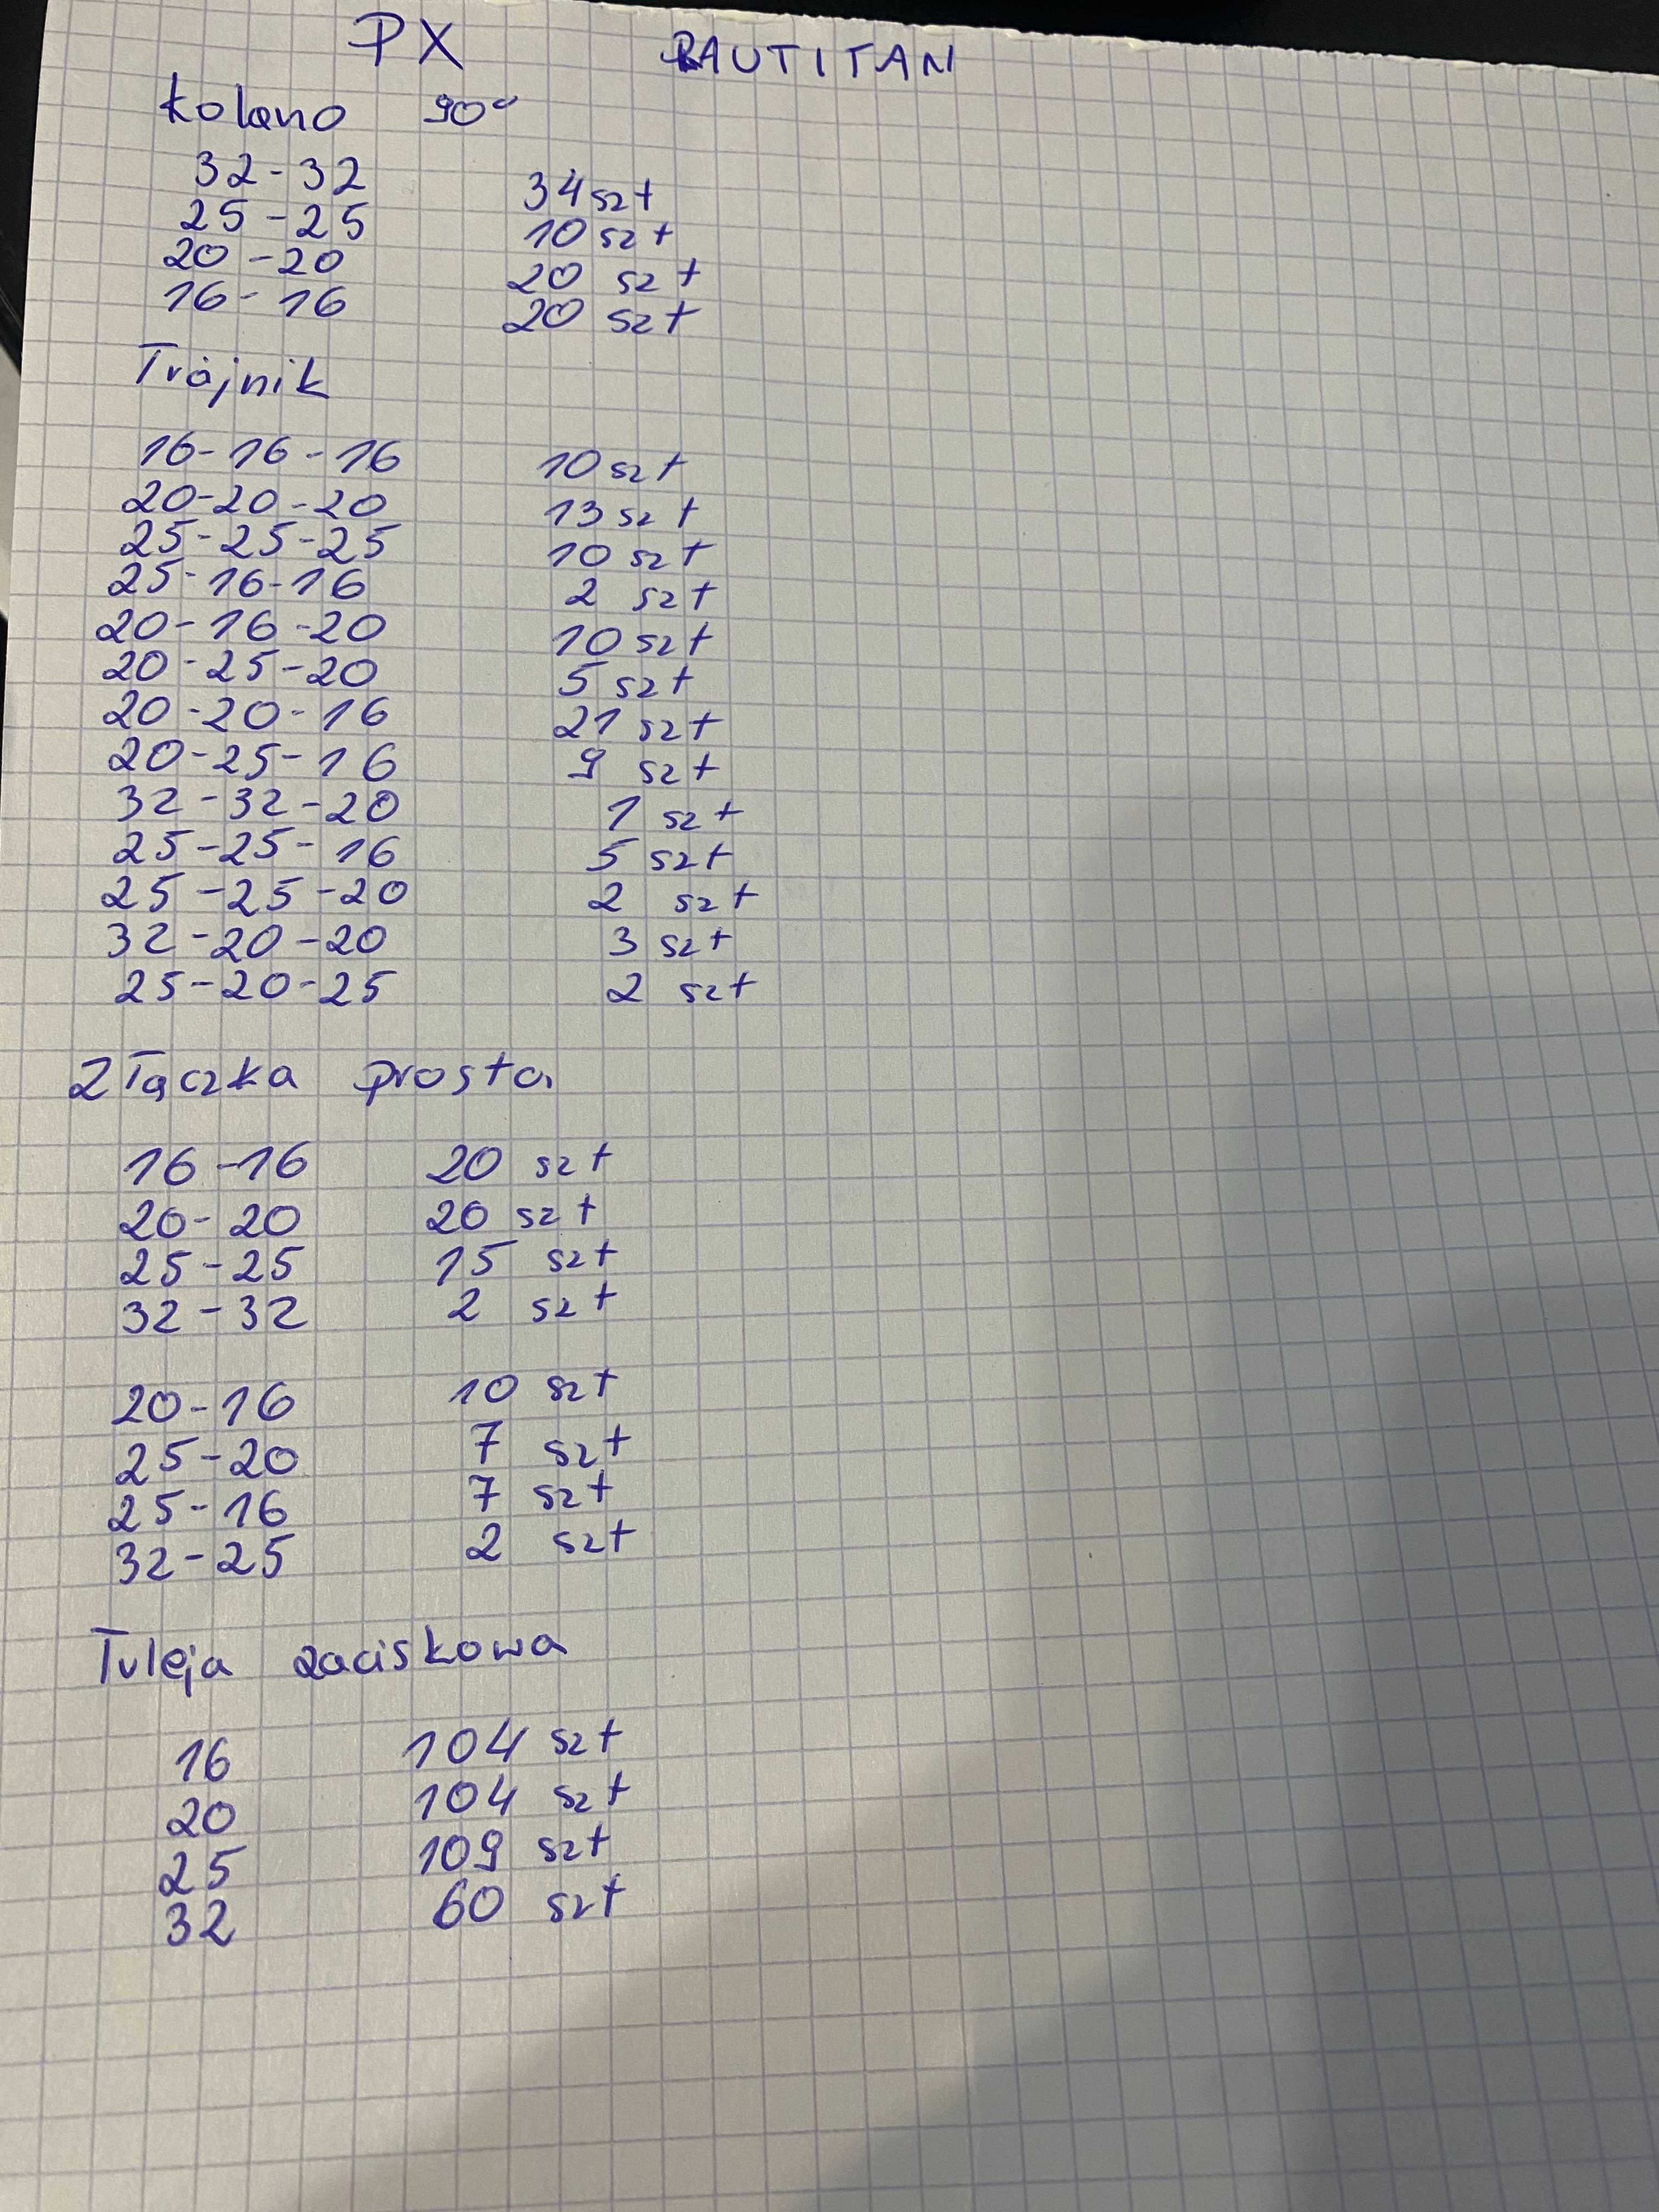 PX RAUTITAN
kolano 90°
32-32 34 szt
25-25 10 szt
20-20 20 szt
16-16 20 szt
Trójnik
16-16-16 10 szt
20-20-20 13 szt
25-25-25 10 szt
25-16-16 2 szt
20-16-20 10 szt
20-25-20 5 szt
20-20-16 21 szt
20-25-16 9 szt
32-32-20 1 szt
25-25-16 5 szt
25-25-20 2 szt
32-20-20 3 szt
25-20-25 2 szt
Złączka prosta
16-16 20 szt
20-20 20 szt
25-25 15 szt
32-32 2 szt
20-16 10 szt
25-20 7 szt
25-16 7 szt
32-25 2 szt
Tuleja zaciskowa
16 104 szt
20 104 szt
25 109 szt
32 60 szt